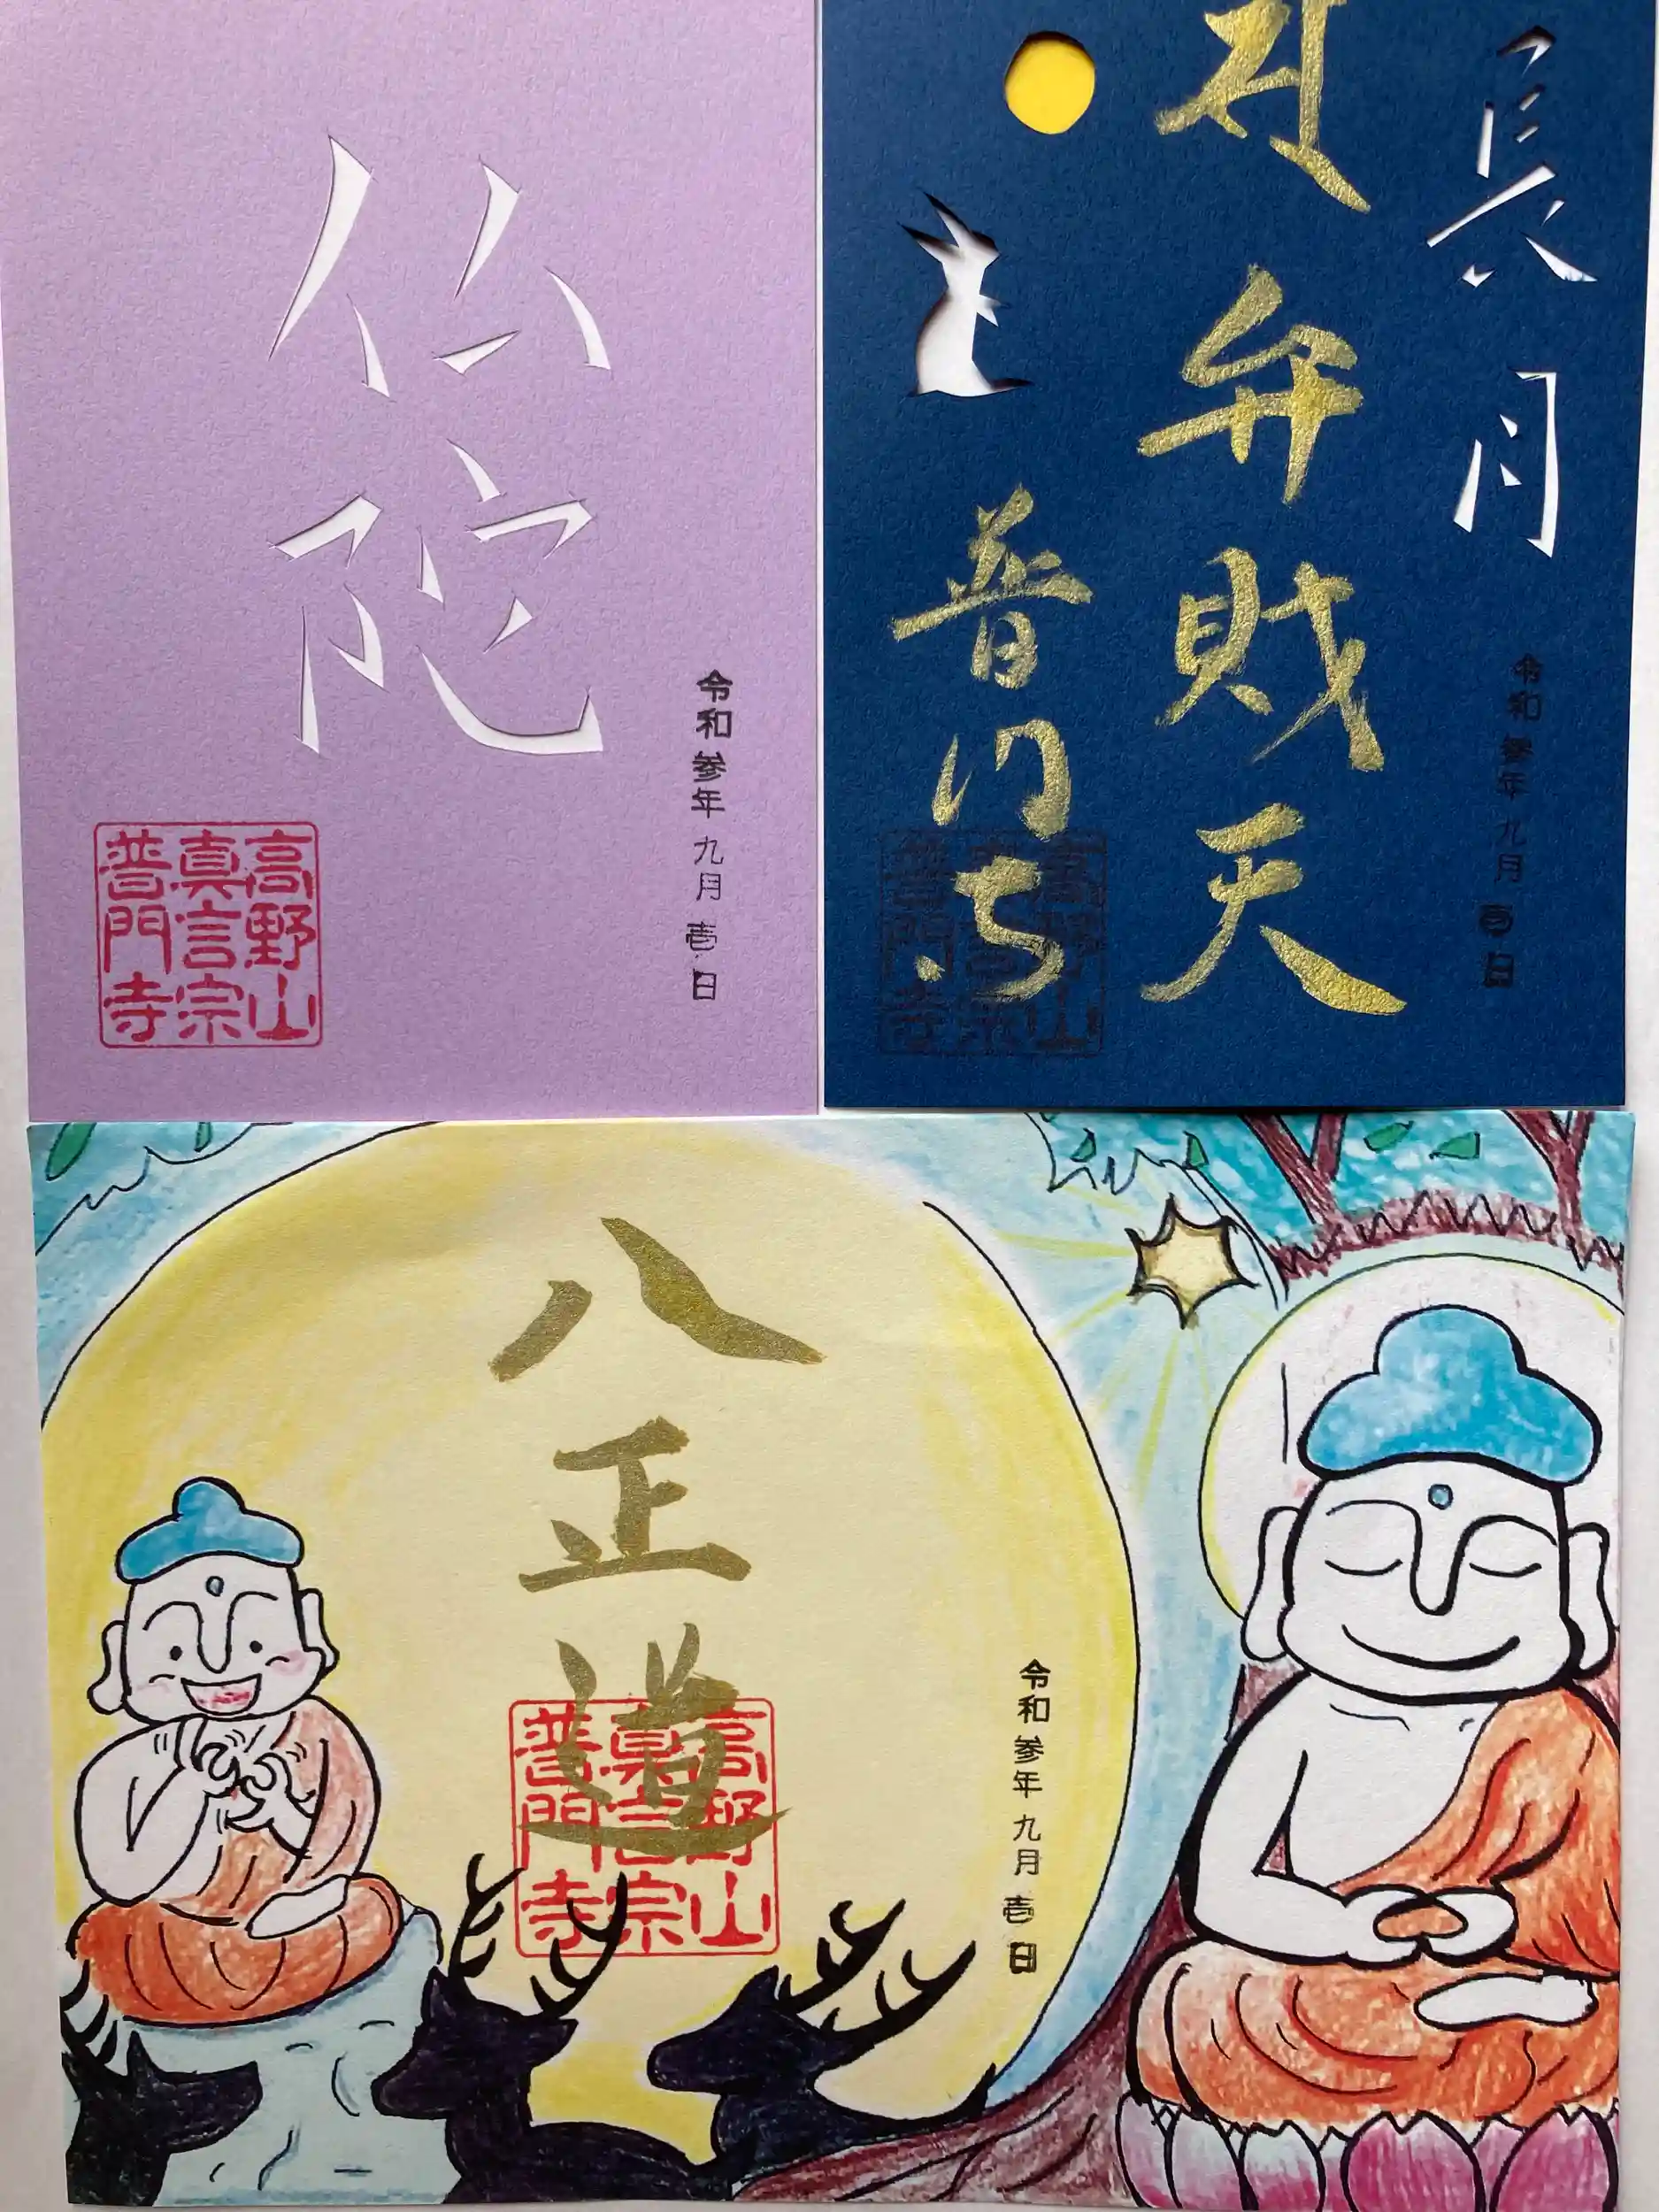 仏陀
令和参年九月壱日
高野山
真言宗
普門寺
長月
弁財天
普門寺
令和参年九月壱日
高野山
真言宗
普門寺
八正道
令和参年九月壱日
高野山
真言宗
普門寺